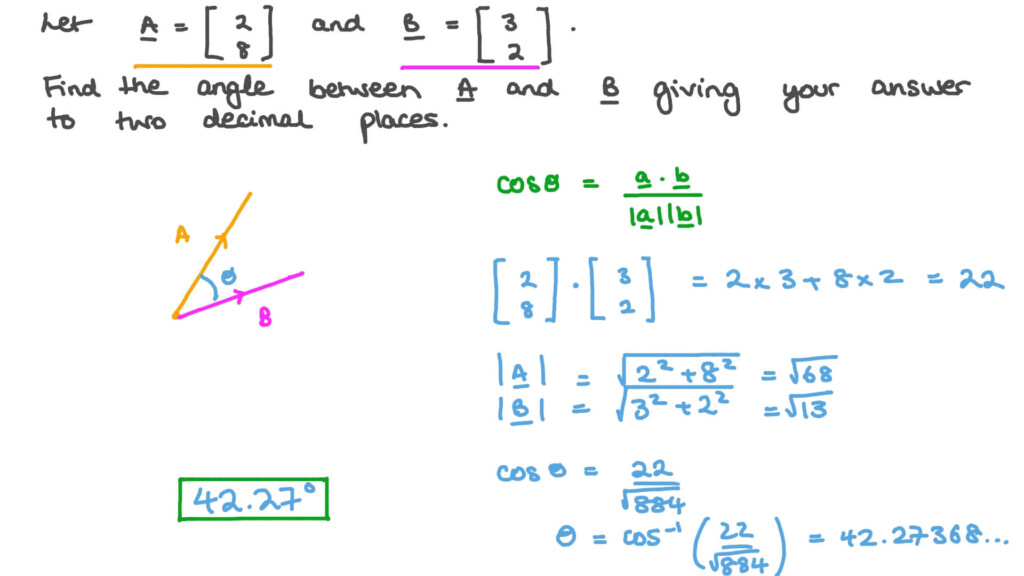 Let A = [2 8] and B = [3 2].
Find the angle between A and B giving your answer
to two decimal places.
cosθ = a · b / |a||b|
A
θ
B
[2 8] · [3 2] = 2 × 3 + 8 × 2 = 22
|A| = √2² + 8² = √68
|B| = √3² + 2² = √13
cos θ = 22 / √884
42.27°
θ = cos⁻¹ (22 / √884) = 42.27368...